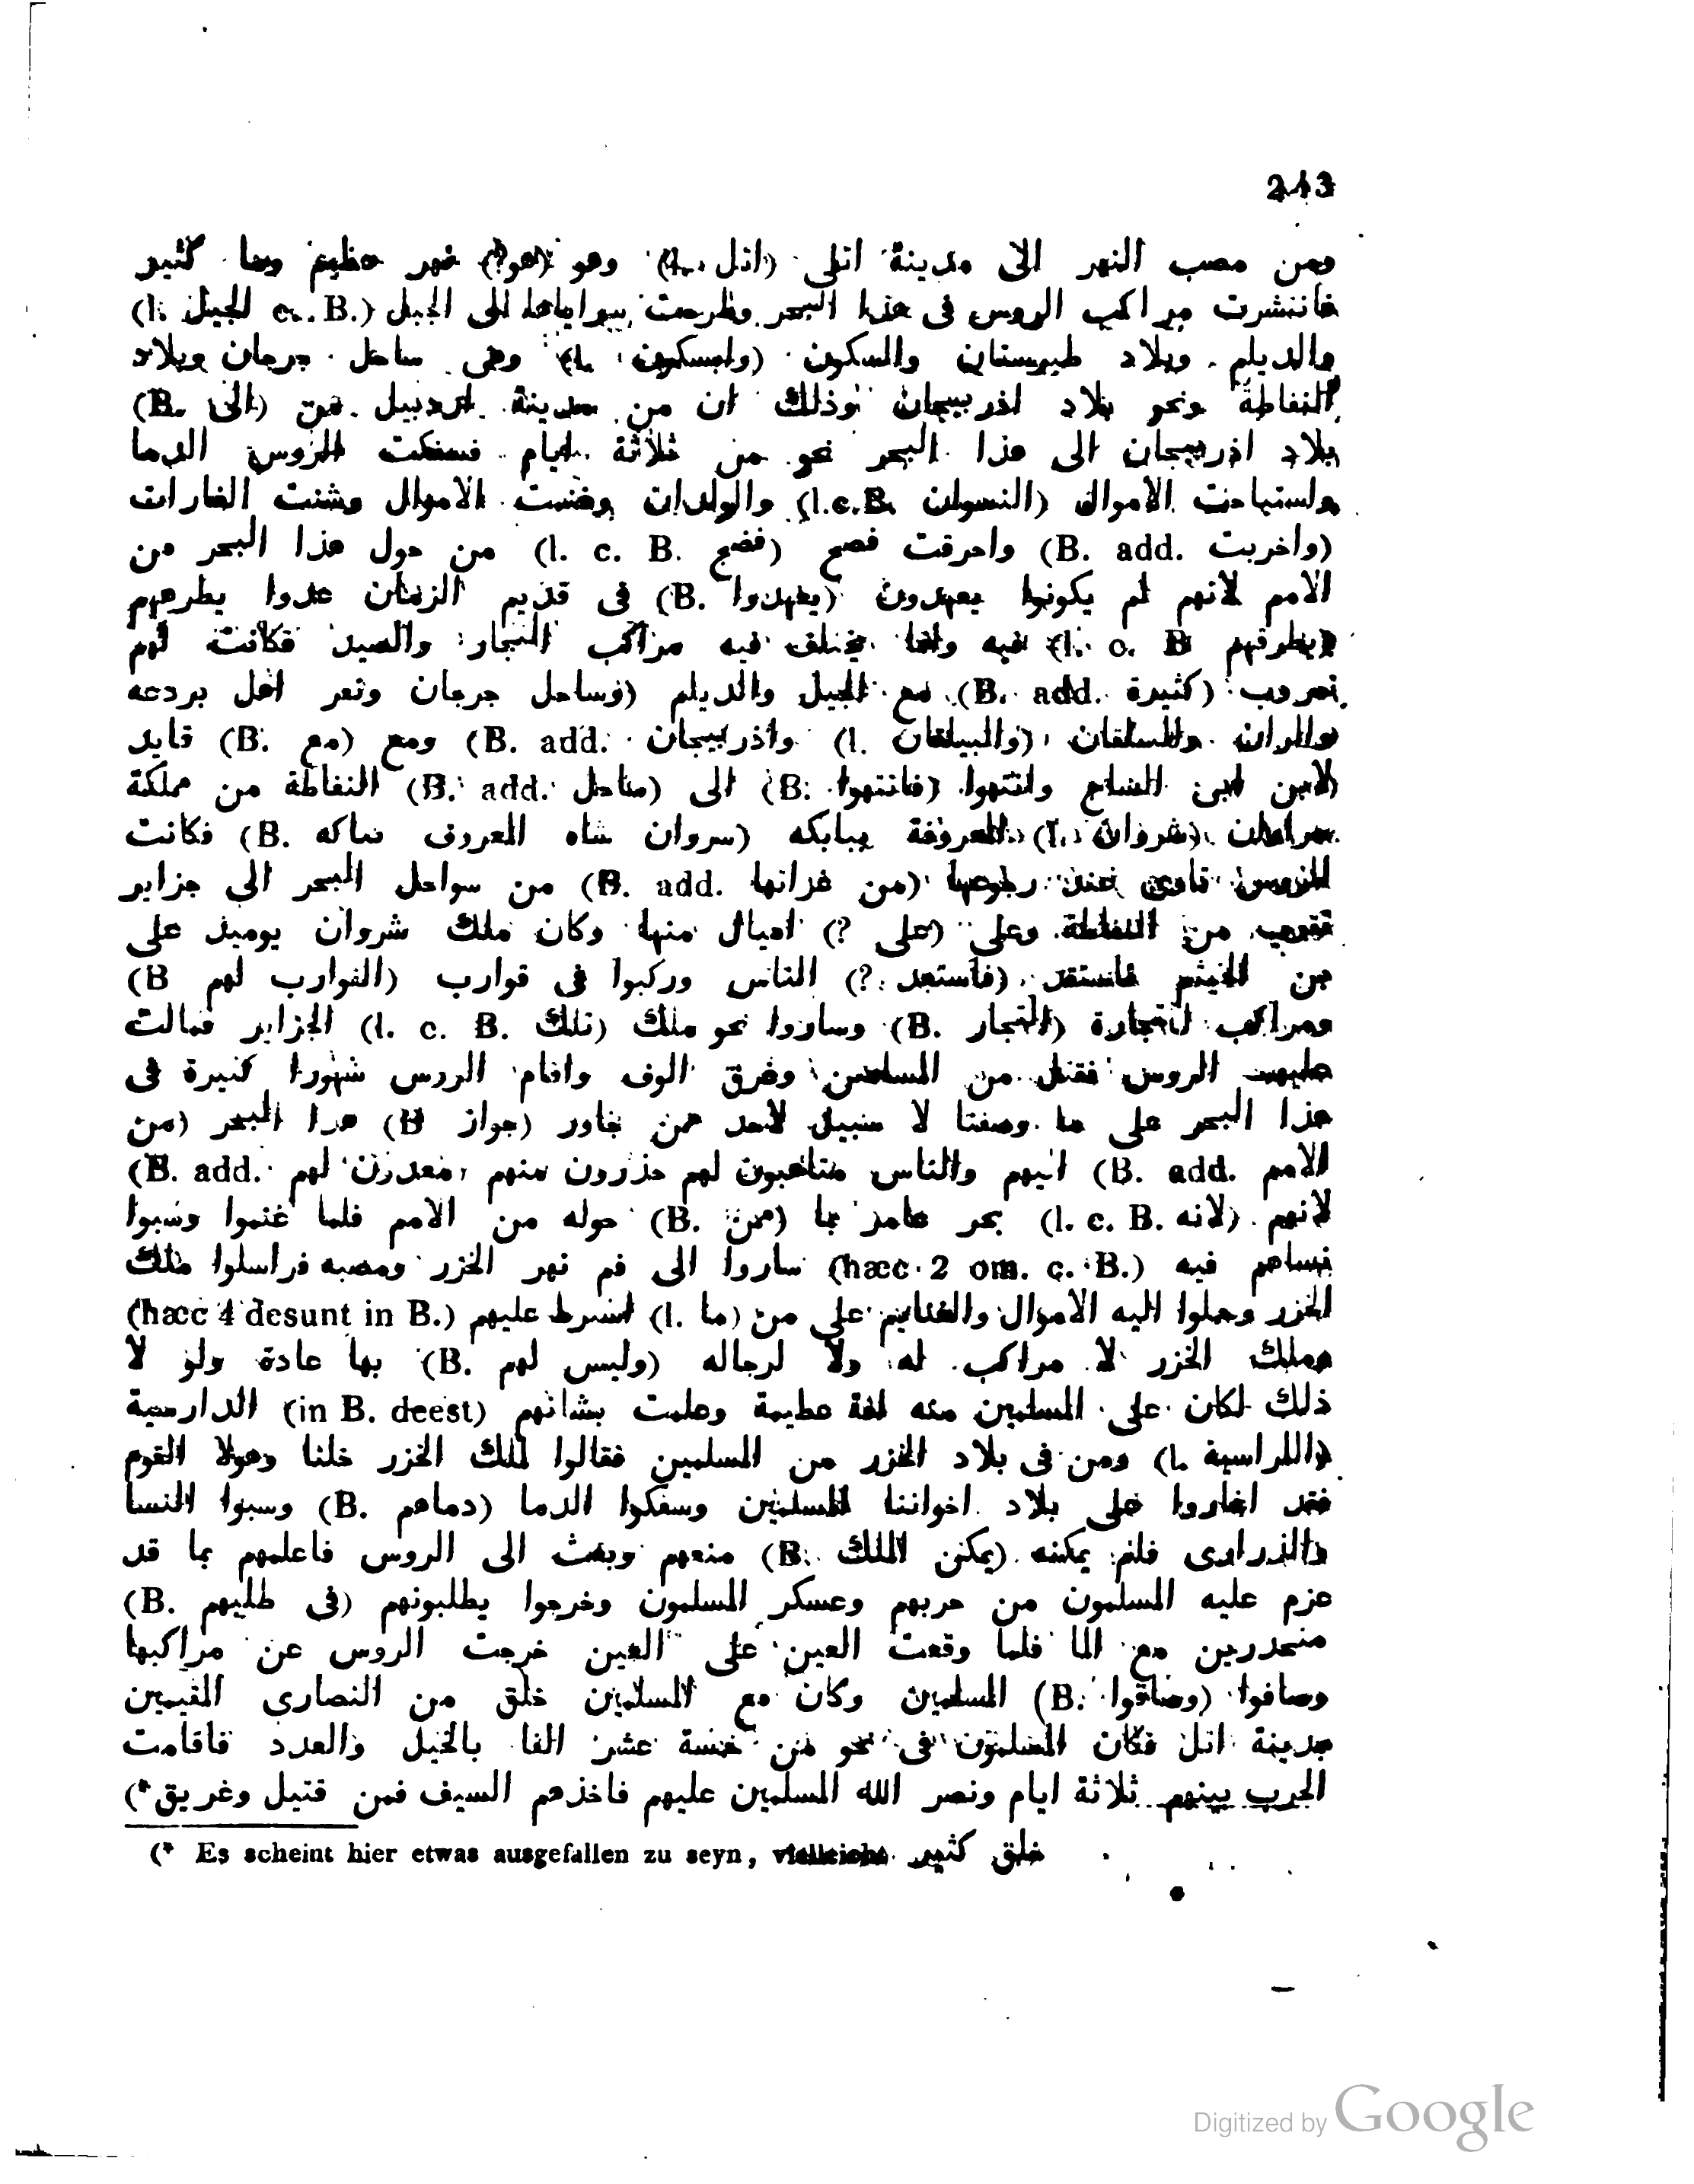 243
ومن مصب النهر الى مدينة اتلى (اتل l.) وهو (هو?) نهر عظيم وما كثير
فانتشرت مراكب الروس فى هذا البحر وطرحت سراياها الى الجبل (l. c. B. الجيل)
والديلم وبلاد طبرستان والسكون (وابسكون l.) وهى ساحل جرجان وبلاد
النفاطة ونحو بلاد اذربيجان وذلك ان من مدينة اردبيل من (الى B.)
بلاد اذربيجان الى هذا البحر نحو من ثلاثة ايام فسفكت الروس الدما
واستباحت الاموال (النسوان l.c.B.) والولدان وغنمت الاموال وشنت الغارات
(واخربت B. add.) واحرقت فصح (فضج l. c. B.) من حول هذا البحر من
الامم لانهم لم يكونوا يعهدون (يعهدوا B.) فى قديم الزمان عدوا يطرحهم
(يطرقهم l. c. B) فيه وانما يختلف فيه مراكب التجار والصيد فكانت لهم
حروب (كثيرة B. add.) مع الجيل والديلم (وساحل جرجان ونعر اهل بردعه
والران والسلقان (والبيلقان l.) واذربيجان B. add.) ومع (مع B.) قايد
لابن ابى الساج وانتهوا (فانتهوا B.) الى (ساحل B. add.) النفاطة من مملكة
(شروان l.) المعروفة ببابكه (سروان شاه المعروف ساكه B.) فكانت
الروس تاوى عند رجوعها (من غزاتها B. add.) من سواحل البحر الى جزاير
تقرب من النفاطة وعلى (على ?) اميال منها وكان ملك شروان يوميذ على
بن الهيثم فاستقد (فاستعد ?) الناس وركبوا فى قوارب (القوارب لهم B)
ومراكب التجارة (التجار B.) وساروا نحو ملك (تلك l. c. B.) الجزاير فمالت
عليهم الروس فقتل من المسلمين وغرق الوف واقام الروس شهورا كثيرة فى
هذا البحر على ما وصفنا لا سبيل لاحد ممن جاور (جواز B) هدا البحر (من
الامم B. add.) اليهم والناس متاهبون لهم حذرون منهم (معدرن لهم B. add.)
لانهم (لانه l. c. B.) بحر عامر بما (من B.) حوله من الامم فلما غنموا وسبوا
نساهم فيه (hæc 2 om. c. B.) ساروا الى فم نهر الخزر ومصبه فراسلوا ملك
الخزر وحملوا اليه الاموال والغنايم على من (ما l.) اشرط عليهم (hæc 4 desunt in B.)
وملك الخزر لا مراكب له ولا لرجاله (وليس لهم B.) بها عادة ولو لا
ذلك لكان على المسلمين منه افة عظيمة وعلمت بشانهم (in B. deest) الدارسية
(اللارسية l.) ومن فى بلاد الخزر من المسلمين فقالوا لملك الخزر خلنا وهولا القوم
فقد اغاروا على بلاد اخواننا المسلمين وسفكوا الدما (دماهم B.) وسبوا النسا
والذرارى فلم يمكنه (يمكن الملك B.) منعهم وبعث الى الروس فاعلمهم بما قد
عزم عليه المسلمون من حربهم وعسكر المسلمون وخرجوا يطلبونهم (فى طلبهم B.)
منحدرين مع الما فلما وقعت العين على العين خرجت الروس عن مراكبها
وصافوا (وصافوا B.) المسلمين وكان مع المسلمين خلق من النصارى المقيمين
بمدينة اتل فكان المسلمون فى نحو من خمسة عشر الفا بالخيل والعدد فاقامت
الحرب بينهم ثلاثة ايام ونصر الله المسلمين عليهم فاخذهم السيف فمن قتيل وغريق*)
(* Es scheint hier etwas ausgefallen zu seyn, vielleicht خلق كثير
Digitized by Google